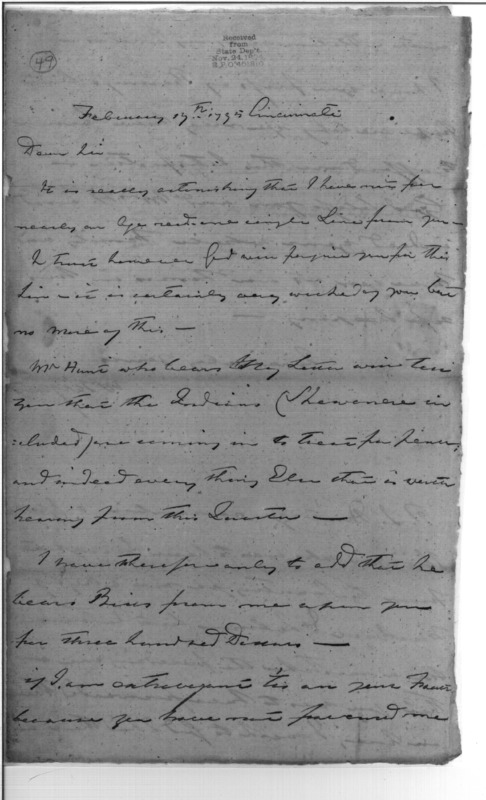 49
Received
from
State Dep't.
Nov. 24, 18
February 19th 1795 Cincinnati
Dear Sir
It is really astonishing that I have not for
nearly an Age recd one single Line from you
I trust however God will forgive you for this
Sin - it is certainly very wicked of you but
no more of this —
Mr Hunt who bears this my Letter will tell
you that the Indians (Shawonese in
:cluded) are coming in to treat for peace,
and indeed every thing Else that is worth
hearing from this Quarter —
I have therefore only to add that he
bears Bills from me upon you
for three hundred Dollars —
if I am extravagant tis all your Fault
because you have not favoured me